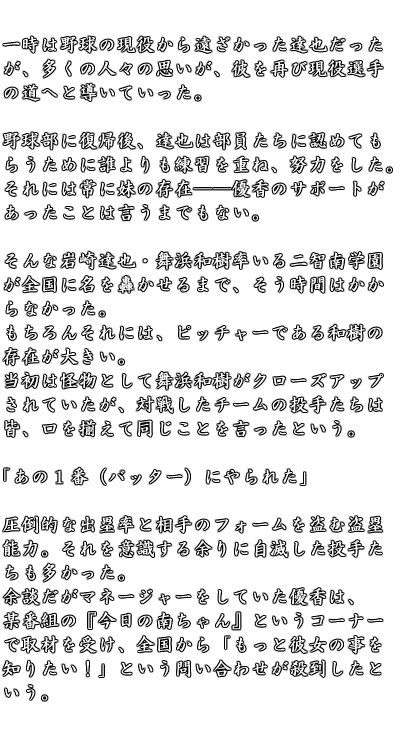 一時は野球の現役から遠ざかった達也だった
が、多くの人々の思いが、彼を再び現役選手
の道へと導いていった。
野球部に復帰後、達也は部員たちに認めても
らうために誰よりも練習を重ね、努力をした。
それには常に妹の存在――優香のサポートが
あったことは言うまでもない。
そんな岩崎達也・舞浜和樹率いる二智南学園
が全国に名を轟かせるまで、そう時間はかか
らなかった。
もちろんそれには、ピッチャーである和樹の
存在が大きい。
当初は怪物として舞浜和樹がクローズアップ
されていたが、対戦したチームの投手たちは
皆、口を揃えて同じことを言ったという。
「あの１番（バッター）にやられた」
圧倒的な出塁率と相手のフォームを盗む盗塁
能力。それを意識する余りに自滅した投手た
ちも多かった。
余談だがマネージャーをしていた優香は、
某番組の『今日の南ちゃん』というコーナー
で取材を受け、全国から「もっと彼女の事を
知りたい！」という問い合わせが殺到したと
いう。